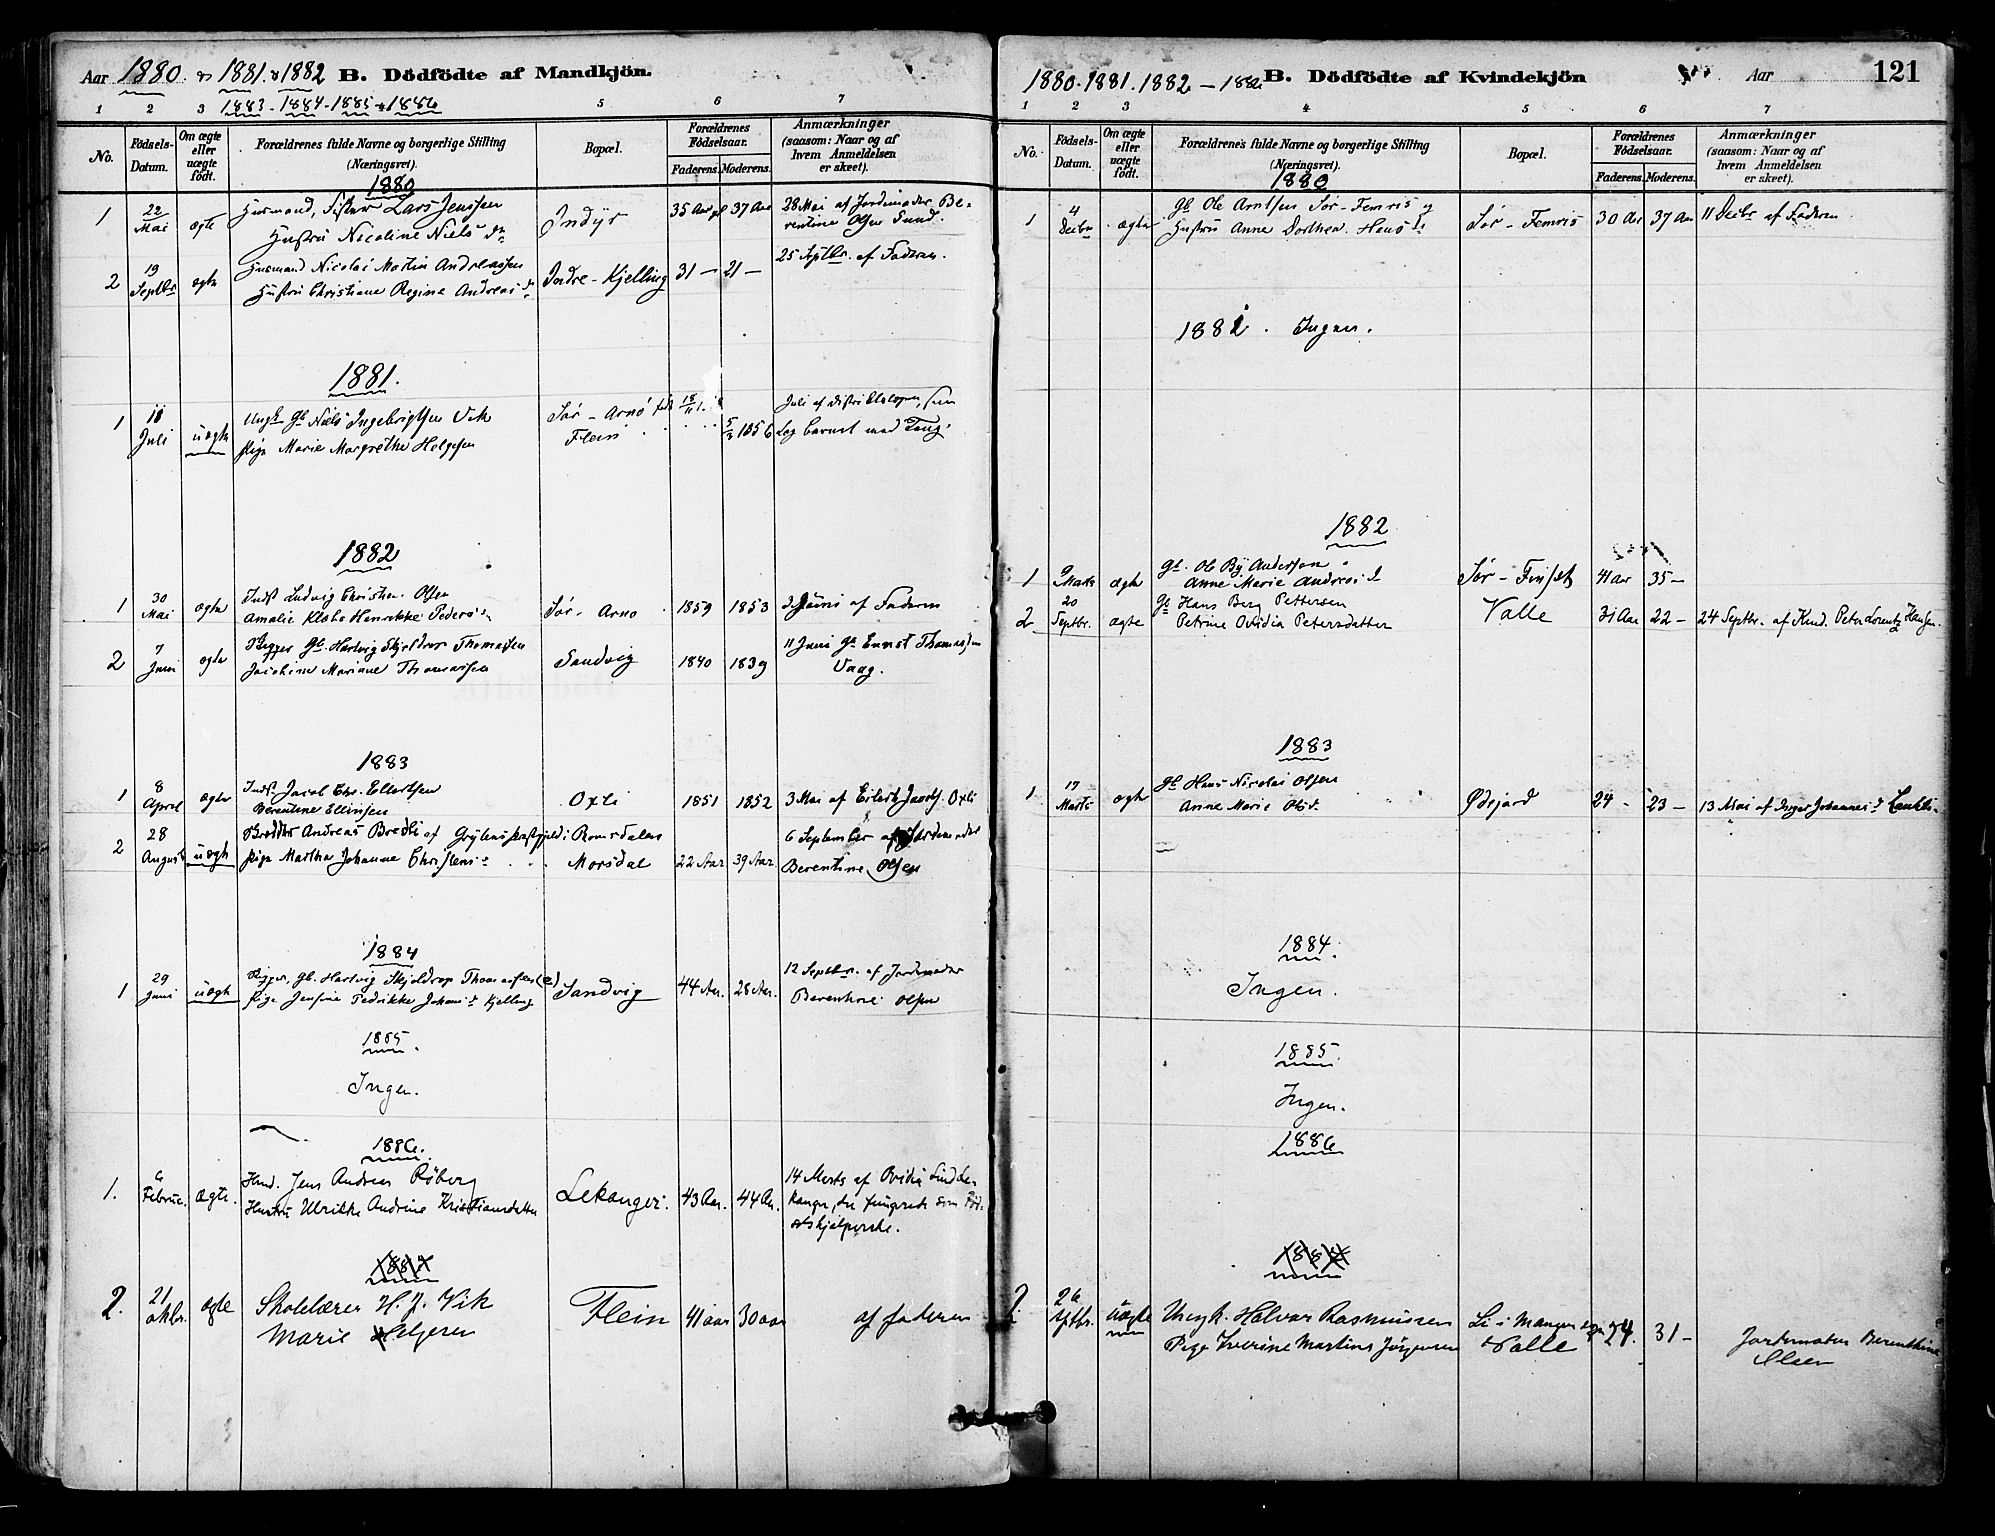 Aar 1880 & 1881 & 1882 B. Dödfödte af Mandkjön.
1883 - 1884 - 1885 & 1886
1 2 3 5 6 7
No. Födsels-Datum. Om ægte eller uægte födt. Forældrenes fulde Navne og borgerlige Stilling (Næringsvei). Bopæl. Forældrenes Födselsaar. Faderens. Moderens. Anmærkninger (saasom: Naar og af hvem Anmeldelsen er skeet).
1880
1 22 Mai ægte Husmand, Fisker Lars Jenssen Indyr 35 Aar 37 Aar 28 Mai af Jordmoder Be-
Hustru Nicoline Niels dr rentine Olsen Sund.
2 19 Septbr ægte Husmand Nicolai Martin Andreassen Indre-Kjelling 31 - 21 - 25 Septbr. af Faderen.
Hustru Christiane Regine Andreas dr
1881.
1 18 Juli uægte Ungk Gb Niels Ingebrigtsen Vik Sør-Arnø 18/11 Juli af Distriktslægen, som
Pige Marie Margrethe Helgesen Flein 5/8 1856 Log barnet med
1882
1 30 Mai ægte Inds Ludvig Christian Olsen Sør-Arnø 1859 1853 3 Juni af Faderen
Amalie Klæbo Henrikke Peders
2 7 Juni ægte Bygger Gb. Hartvig Skjeldrup Thomassen Sandvig 1840 1839 11 Juni Gb Ernst Thomassen
Jacobine Mariane Thomassen Vaag.
1883
1 8 April ægte Inds. Jacob Chr. Ellertsen Oxli 1851 1852 3 Mai af Eilert Jacobs. Oxli
Berentine Ellingsen
2 28 August uægte Andreas Bredli af Grytens Præstegjeld i Romsdalen 6 September af Jordemoder
Pige Martha Johanne Christens Morsdal 22 Aar 39 Aar Berentine Olsen
1884
1 29 Juni uægte Bygger, Gb. Hartvig Skjeldrup Thomassen (e) Sandvig 44 Aar. 28 Aar. 12 Septbr. af Jordmoder
Pige Jensine Fedrikke Johans d Kjelling Berentine Olsen
1885
Ingen.
1886.
1. 6 Februar. ægte. Hmd. Jens Andreas Röberg Lekanger. 43 Aar. 44 Aar. 14 Marts af Ovidia Lind Le-
Hustru Ulrikke Andrine Kristiansdatter kanger, der fungerede som Föd-
selshjelperske.
1887
2. 21 oktbr. ægte Skolelærer H. J. Vik Flein 41 aar 30 aar af faderen
Marie Helgesen
1880. 1881. 1882 - 1886 B. Dödfödte af Kvindekjön Aar 121
1 2 3 4 5 6 7
No. Födsels-Datum. Om ægte eller uægte födt. Forældrenes fulde Navne og borgerlige Stilling (Næringsvei). Bopæl. Forældrenes Födselsaar. Faderens. Moderens. Anmærkninger (saasom: Naar og af hvem Anmeldelsen er skeet).
1880
1 4 Decbr ægte Gb Ole Arntsen Sør-Femris og Sør-Femris 30 Aar 37 Aar 11 Decbr af Faderen
Hustru Anne Dorthea Hans d
1881. Ingen.
1882
1 9 Marts ægte Gb. Ole By Andersen Sør-Finset 41 Aar 35 -
Anne Marie Andreas d
2 20 Septbr. ægte Gb Hans Berg Pettersen Valle 31 Aar 22 - 24 Septbr. af Kmd. Peter Lorentz Hansen.
Petrine Ovidia Petersdatter
1883
1 17 Marts ægte Gb Hans Nicolai Olsen Ødejord 24 - 23 - 13 Mai af Inger Johannes d
Anne Marie Olsd.
1884.
Ingen.
1885.
Ingen.
1886
1887
2. 26 Sptbr. uægte Ungk. Halvar Rasmussen Li i Manger sogn 24. 31 - Jordemoder Berenthine
Pige Iverine Martine Jörgensen & Valle Olsen